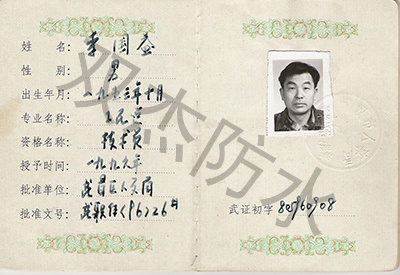 姓名: 李国金
性别: 男
出生年月: 一九五三年十月
专业名称:
资格名称: 技术员
授予时间: 一九九六年
批准单位: 武昌区人事局
批准文号: 武职任<96>26号
武证初字 805960908
双杰防水